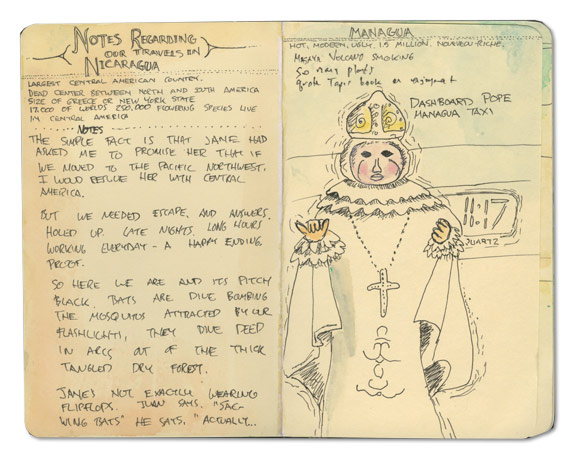 NOTES REGARDING
OUR TRAVELS IN
NICARAGUA
LARGEST CENTRAL AMERICAN COUNTRY.
DEAD CENTER BETWEEN NORTH AND SOUTH AMERICA
SIZE OF GREECE OR NEW YORK STATE
17,000 OF WORLDS 250,000 FLOWERING SPECIES LIVE
IN CENTRAL AMERICA
NOTES
THE SIMPLE FACT IS THAT JANE HAD
ASKED ME TO PROMISE HER THAT IF
WE MOVED TO THE PACIFIC NORTHWEST,
I WOULD BESIEGE HER WITH CENTRAL
AMERICA.
BUT WE NEEDED ESCAPE, AND ANSWERS.
HOLED UP. LATE NIGHTS, LONG HOURS
WORKING EVERYDAY - A HAPPY ENDING.
PROOF.
SO HERE WE ARE AND ITS PITCH
BLACK. BATS ARE DIVE BOMBING
THE MOSQUITOS ATTRACTED BY OUR
FLASHLIGHTS, THEY DIVE DEEP
IN ARCS OUT OF THE THICK
TANGLED DRY FOREST.
JANE'S NOT EXACTLY WEARING
FLIPFLOPS. JUAN SAYS, "SAC-
WING BATS" HE SAYS, "ACTUALLY...
MANAGUA
HOT, MODERN, UGLY. 1.5 MILLION. NOUVEAU-RICHE.
MASAYA VOLCANO SMOKING
SO MANY PLANTS
QUOTE TAPIR BOOK ON
DASHBOARD POPE
MANAGUA TAXI
11:17
QUARTZ